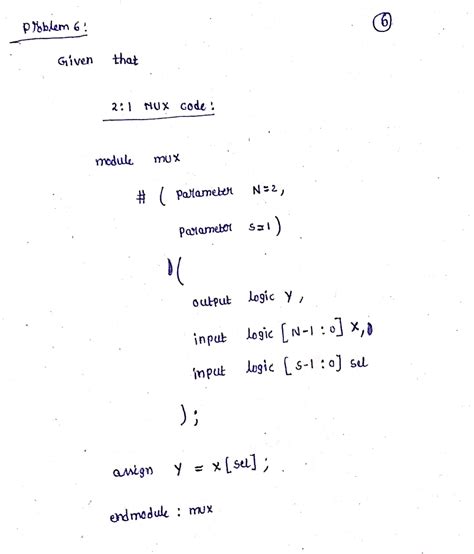 Problem 6:
6
Given that
2:1 MUX code:
module mux
# ( parameter N=2,
parameter S=1)
(
output logic Y,
input logic [N-1:0] X,
input logic [S-1:0] sel
);
assign Y = X[sel];
endmodule : mux